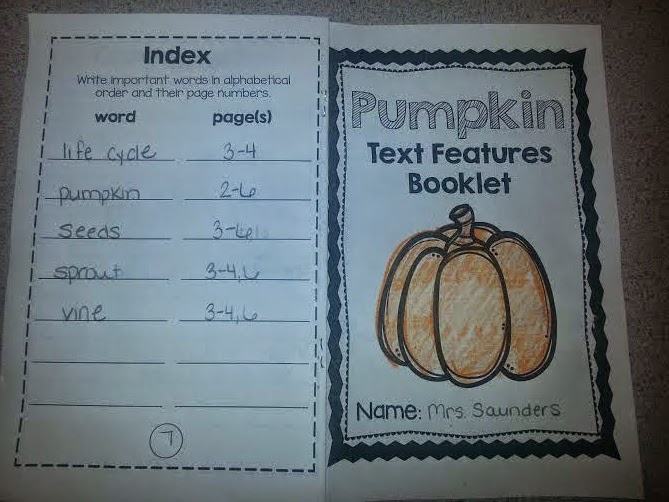 Index
Write important words in alphabetical
order and their page numbers.
word page(s)
life cycle 3-4
pumpkin 2-6
Seeds 3-6
sprout 3-4,6
vine 3-4,6
7
Pumpkin
Text Features
Booklet
Name: Mrs. Saunders